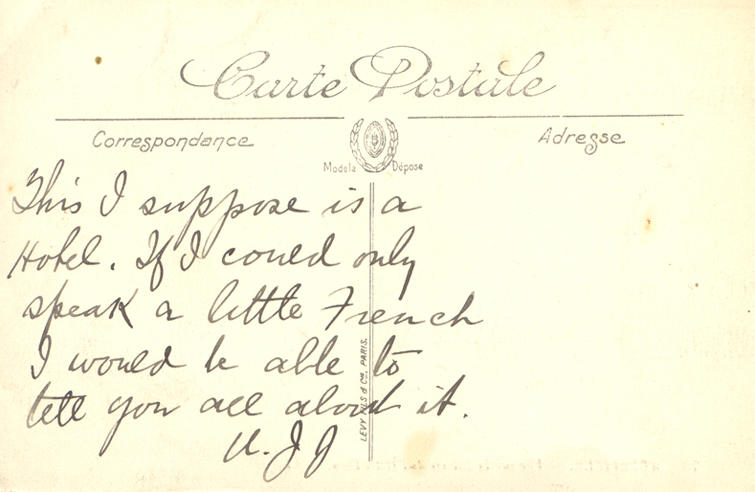 Carte Postale
Correspondance
Adresse
Modele Déposé
This I suppose is a
Hotel. If I could only
speak a little French
I would be able to
tell you all about it.
LEVY FILS & Cie, PARIS.